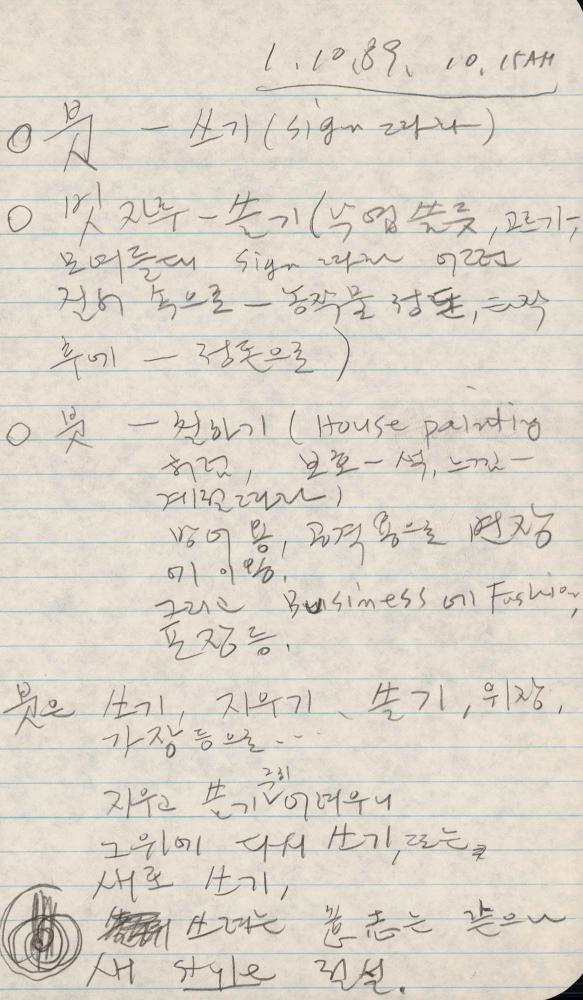 1.10.89. 10.15AM
○ 붓 — 쓰기 (sign 따라)
○ 빗자루 – 쓸기 (낙엽 쓸듯, 고르기,
sign 따라 어떤
질서 속으로 – 농작물 정돈,
후에 — 정돈으로)
○ 붓 — 칠하기 (House painting
처럼, 보호–색, 느낌–
계절따라)
방어용, 공격용으로 변장
에 이용.
그리고 Business에 Fashion,
포장 등.
붓은 쓰기, 지우기, 쓸기, 위장,
가장 등으로...
지우고 쓸기 어려우니
그위에 다시 쓰기, 또는
새로 쓰기,
쓰려는 意志는 같으나
새 style은 전설.